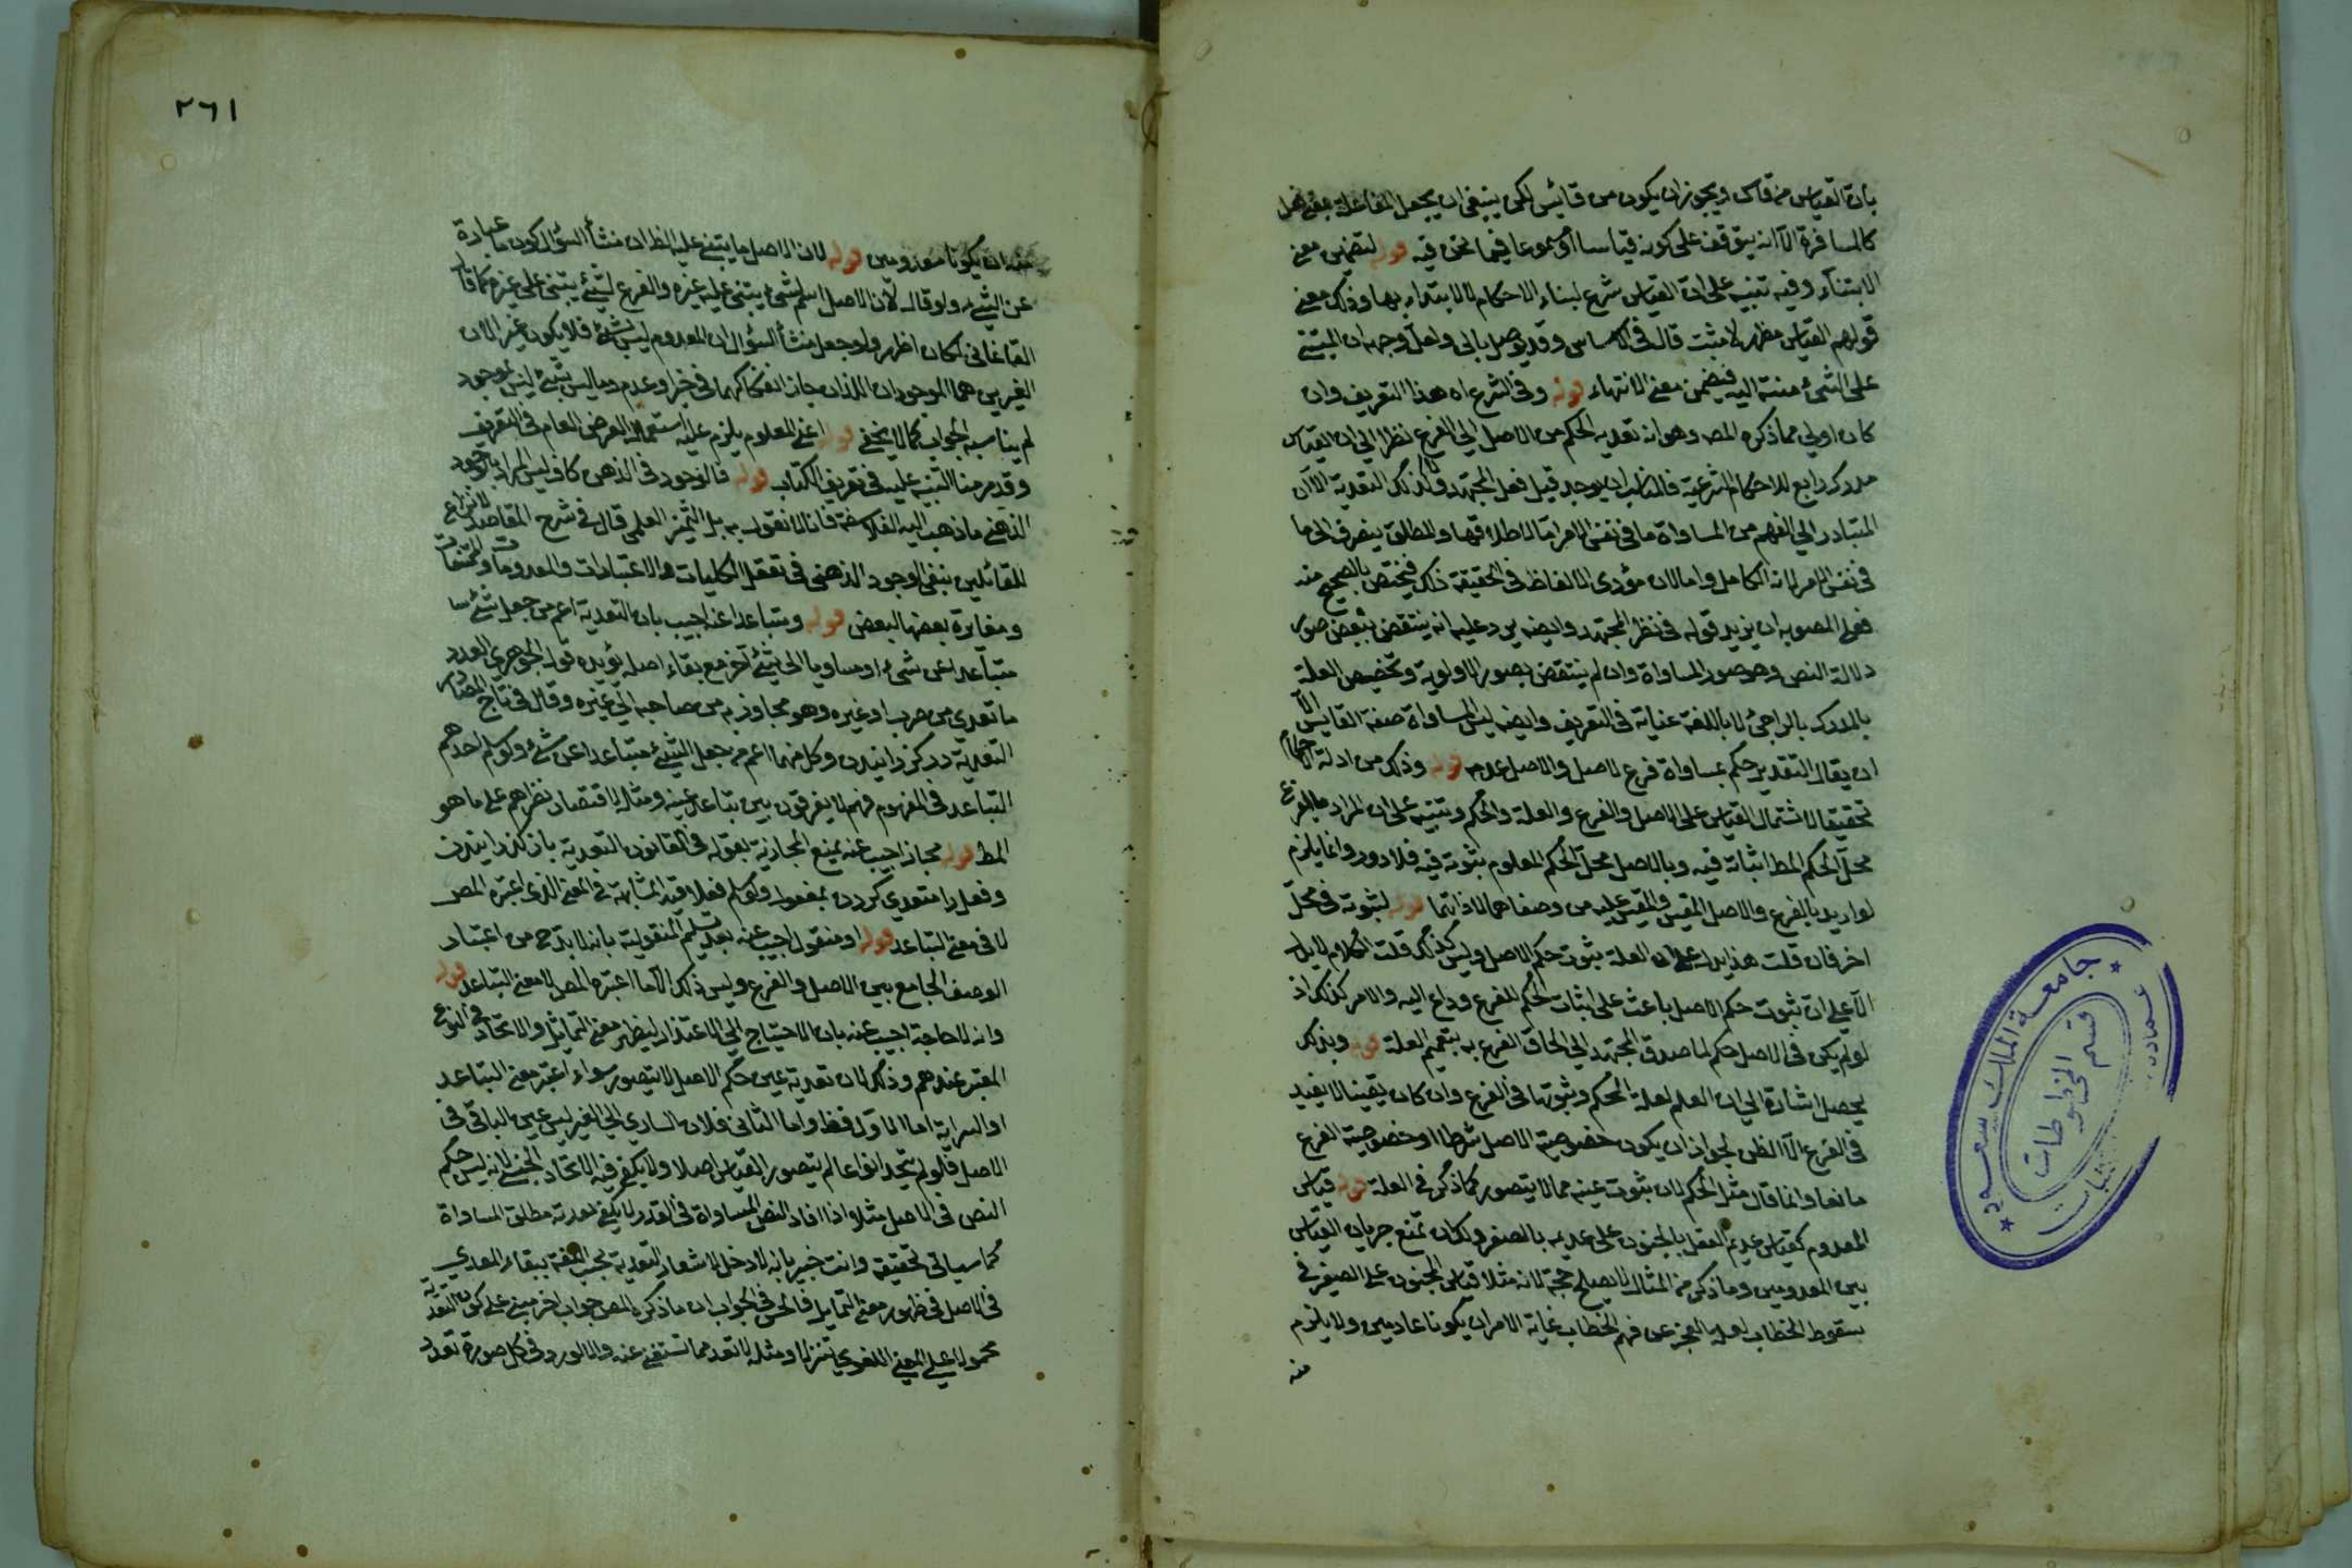 بان القياس من قاس ويجوز ان يكون من قايس لكن ينبغي ان يجعل المفاعلة بمعنى فعل
كالمسافرة الا انه يتوقف على كونه قياسا او سموعا فيما نحن فيه قوله لتضمن معنى
الابتناء وفيه تنبيه على ان القياس شرع لبناء الاحكام لا لابتداء بها وذلك معنى
قولهم القياس مظهر لا مثبت قال في الاساس وقد يوصل بالى ولعل وجهه ان المبتنى
على الشئ منته اليه فيضمن معنى الانتهاء قوله وفي الشرع اه هذا التعريف وان
كان اولى مما ذكره المص وهو انه تعدية الحكم من الاصل الى الفرع نظرا الى ان القياس
مدرك رابع للاحكام الشرعية فالمناسب ان يوجد قبل فعل المجتهد ولا كذلك التعدية الا ان
المتبادر الى الفهم من المساواة ما في نفس الامر اما لاطلاقها والمطلق ينصرف الى ما
في نفس الامر لانه الكامل واما لان مؤدى الالفاظ في الحقيقة ذلك فيختص بالصحيح منه
فعلى المصوبه ان يزيد قوله في نظر المجتهد وايضه يرد عليه انه ينتقض ببعض صور
دلالة النص وهو صور المساواة وان لم ينتقض بصور الاولوية وتخصيص العلة
بالمدرك بالراي لا باللغة عناية في التعريف وايضه ليس المساواة صفة القايس الا
ان يقال التقدير حكم بمساواة فرع لاصل والاصل عدمه قوله وذلك من ادلة الاحكام
تحقيقا لاشتمال القياس على الاصل والفرع والعلة والحكم وتنبيه على ان المراد بالفرع
محل الحكم المط اثباته فيه وبالاصل محل الحكم المعلوم ثبوته فيه فلا دور وانما يلزم
لو اريد بالفرع والاصل المقيس والمقيس عليه من وصفاهما لا ذاتهما قوله لثبوته في محل
اخر فان قلت هذا يدل على ان العلة ثبوت حكم الاصل وليس كذلك قلت الكلام لا يدل
الا على ان ثبوت حكم الاصل باعث على اثبات الحكم للفرع وداع اليه والامر كذلك اذ
لو لم يكن في الاصل حكم لما صدق المجتهد الى الحاق الفرع به بتعميم العلة قوله وبذلك
يحصل اشارة الى ان العلم لعلة الحكم وثبوتها في الفرع وان كان يقينا لا يفيد
في الفرع الا الظن لجواز ان يكون خصوصية الاصل شرطا او خصوصية الفرع
مانعا وانما قال مثل الحكم لان ثبوت عينه مما لا يتصور كما ذكر في العلة قوله قياس
المعدوم كقياس عديم العقل بالجنون على عديمه بالصغر ولكان تمنع جريان القياس
بين المعدومين وما ذكر من المثال لا يصلح حجة لانه مثلا قياس المجنون على الصغير في
سقوط الخطاب لعلة العجز عن فهم الخطاب غاية الامر ان يكونا عادمين ولا يلزم
منه
٢٦١
منه ان يكونا معدومين قوله لان الاصل ما يبتنى عليه الظ ان منشأ السؤال كون ما عبارة
عن الشئ ولو قال لان الاصل اسم لشئ يبتنى عليه غيره والفرع لشئ يبتنى على غيره كما قال
القاغاني لكان اظهر ولو جعل منشأ السؤال ان المعدوم ليس بشئ فلا يكون غير الان
الغيرين هما الموجودان اللذان جاز انفكاكهما في حيز او عدم وما ليس بشئ ليس بموجود
لم يناسبه الجواب كما لا يخفى قوله اعني المعلوم يلزم عليه استعمال العرض العام في التعريف
وقد مر منا التنبيه عليه في تعريف الكتاب قوله فالوجود في الذهن كاف ليس المراد بالوجود
الذهني ما ذهب اليه الفلاسفة فانا لا نقول به بل التميز العلمي قال في شرح المقاصد لا نزاع
للقائلين بنفي الوجود الذهني في تعقل الكليات والاعتبارات والمعدومات والممتنعات
ومغايرة بعضها لبعض قوله ويتباعدا عنه اجيب بان التعدية اعم من جعل شئ سا
متباعدا عن شئ او مساويا الى شئ اخر مع بقاء اصله يؤيده قول الجوهري العدوى
ما تعدي من جرب او غيره وهو مجاوزته من صاحبه الى غيره وقال في تاج المصادر
التعدية در كذرانيدن وكل منهما اعم من جعل الشئ متباعدا عن شئ ولو سلم اخذهم
التباعد في المفهوم فهم لا يفرقون بين تباعد عينه ومثله لاقتصار نظرهم على ما هو
المط قوله مجاز اجيب عنه بمنع المجازية لقوله في القانون التعدية باز كذرانيدن
وفعل را متعدي كردن بمفعول ولو سلم فعلاقته المشابهة في المعنى الذى اعتبره المص
لا في معنى التباعد قوله او منقول اجيب عنه بعد تسليم المنقولية بانه لا بد ح من اعتبار
الوصف الجامع بين الاصل والفرع وليس ذلك الا ما اعتبره المص لا معنى التباعد قوله
وانه لا حاجة اجيب عنه بان الاحتياج الى الاعتذار ليظهر معنى التماثل والاتحاد في النوع
المعتبر عندهم وذلك لان تعدية عين حكم الاصل لا يتصور سواء اعتبر معنى التباعد
او السراية اما الاول فظ واما الثاني فلان الساري الى الغير ليس عين الباقي في
الاصل فلو لم يتحد نوعا لم يتصور القياس اصلا ولا يكفي فيه الاتحاد الجنسي لانه ليس حكم
النص في الاصل مثلا واذا افاد النص المساواة في القدر لا يكفي تعدية مطلق المساواة
كما سياتي تحقيقه وانت خبير بانه لا دخل لاشعار التعدية بحسب اللغة ببقاء المعدي
في الاصل في ظهور معنى التماثل فالحق في الجواب ان ما ذكره المص جواب اخر مبني على كون التعدية
محمولا على المعنى اللغوي تنزلا ومثله لا تعد مما تستغنى عنه والا لورد في كل صورة تعدد
جامعة الملك سعود
قسم المخطوطات